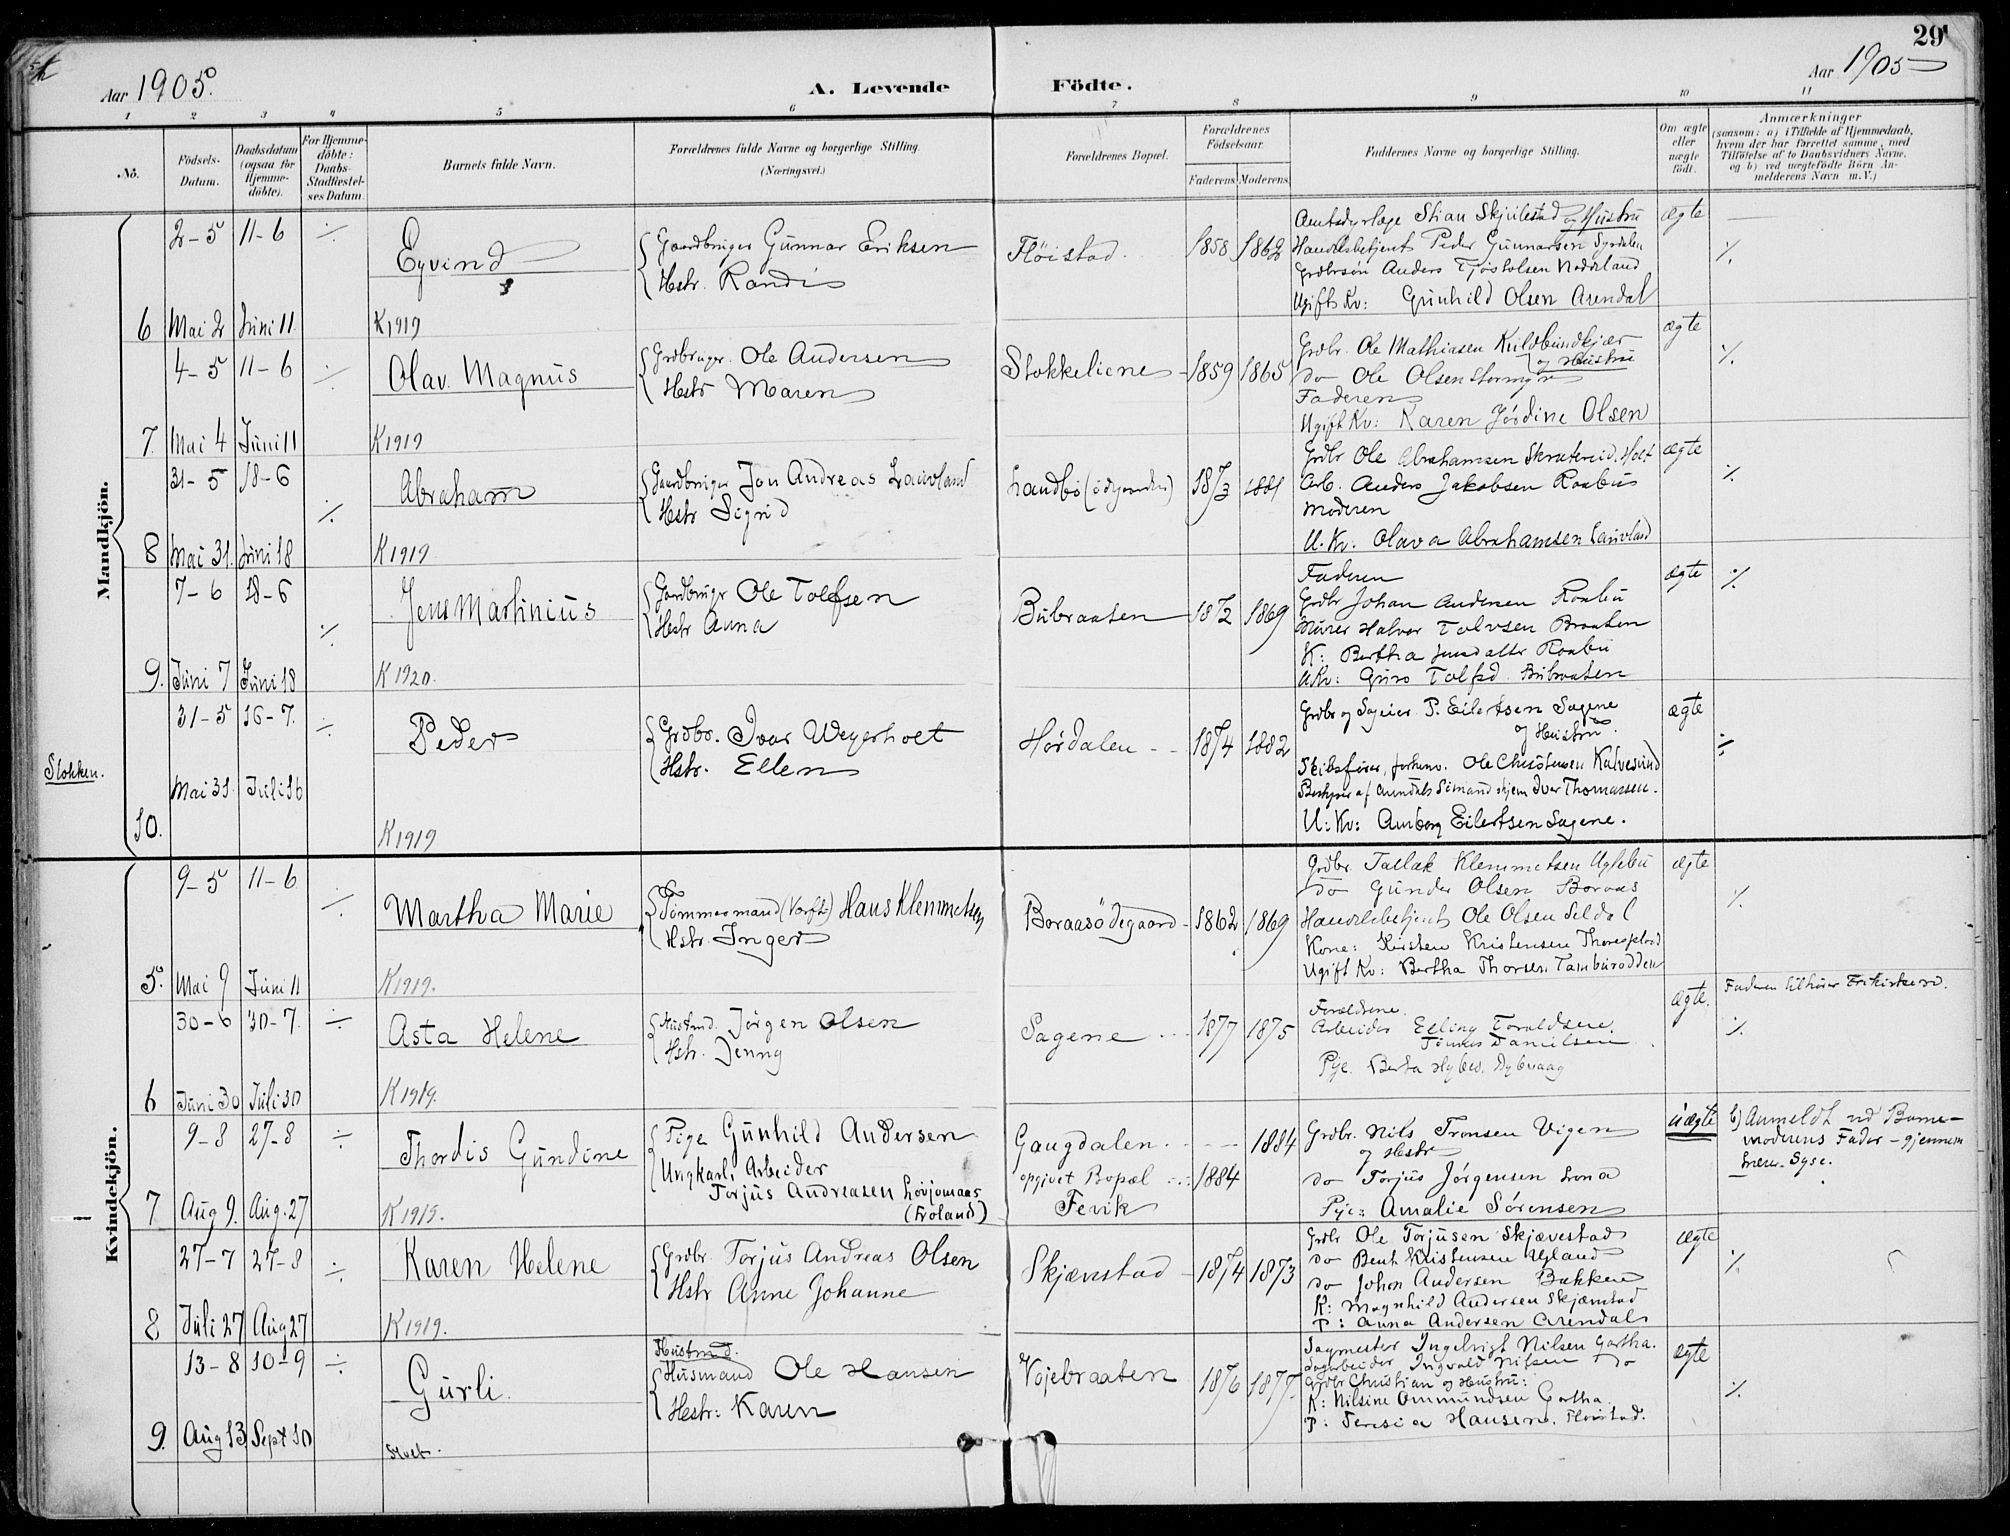 29
Aar 1905.
A. Levende Födte.
Aar 1905
1 2 3 4 5 6 7 8 9 10 11
No.
Födsels-Datum.
Daabsdatum (ogsaa for Hjemme-döbte).
For Hjemme-döbte: Daabs-Stadfæstel-ses Datum.
Barnets fulde Navn.
Forældrenes fulde Navne og borgerlige Stilling. (Næringsvei.)
Forældrenes Bopæl.
Forældrenes Födselsaar.
Faderens. Moderens.
Faddernes Navne og borgerlige Stilling.
Om ægte eller uægte födt.
Anmærkninger
(saasom: a) i Tilfælde af Hjemmedaab, hvem der har forrettet samme, med Tilföielse af to Daabsvidners Navne, og b) ved uægtefödte Börn Anmelderens Navn m. V.)
Mandkjön.
6 2-5 11-6
Mai 2 Juni 11
Eyvind
K 1919
Gaardbruger Gunnar Eriksen
Hstr. Randi
Fløistad
1858 1862
Amtsdyrlæge Stian Skjulestad og Hustru
Handelsbetjent Peder Gunnarsen
Anders
Ugift Kv: Gunhild Olsen Arendal
ægte
7 4-5 11-6
Mai 4 Juni 11
Olav Magnus
K 1919
Grdbruger. Ole Andersen
Hstr Maren
Stokkeliene
1859 1865
Grdbr. Ole Mathiasen
og Hustru
do Ole Olsen
Faderen
Ugift Kv: Karen Jørdine Olsen
ægte
8 31-5 18-6
Mai 31. Juni 18
Abraham
K 1919
Gaardbruger Jon Andreas Lauvland
Hstr Sigrid
Landbø
1873 1881
Grdbr Ole Abrahamsen Holt
Arb. Anders Jakobsen Raabu
Moderen
U. Kv. Olava Abrahamsen Lauvland
ægte
9. 7-6 18-6
Juni 7 Juni 18
Jens Martinius
K 1920.
Gardbrugr Ole Tolfsen
Hstr Anna
Bubraaten
1872 1869
Faderen
Grdbr Johan Andersen Raabu
Murer Halvor Tolvsen Braaten
K: Bertha Raabu
U Kv: Guro Bubraaten
ægte
Stokken.
10. 31-5 16-7.
Mai 31. Juli 16
Peder
K 1919
Grdbr. Ivar Weyerholt
Hstr. Ellen
Hørdalen
1874 1882
Grdbr og Sageier P. Eilertsen Sagene
og Hustru
Skibsfører, Ole Christensen Kalvesund
Bestyrer af Arendals Sømandshjem Ivar Thomassen.
U: Kv: Eilertsen Sagene.
ægte
Kvindekjön.
5. 9-5 11-6
Mai 9 Juni 11
Martha Marie
K 1919.
Tømmermand Hans Klemmetsen
Hstr. Inger
Boraasødegaard
1862 1869
Grdbr. Tallak Klemmetsen Uglebu
do Gunder Olsen Boraas
Handelsbetjent Ole Olsen Seldal
Kone: Kirsten Kristensen
Ugift Kv: Bertha Thorsen
ægte
6 30-6 30-7.
Juni 30 Juli 30
Asta Helene
K 1919.
Husmd. Jørgen Olsen
Hstr. Jenny
Sagene
1877 1875
Forældrene.
Arbeider Elling Toraldsen.
Tønnes Danielsen
Pige Berta
ægte.
Faderen tilhører Frikirken.
7 9-8 27-8
Aug 9. Aug. 27
Thordis Gundine
K 1919.
Pige Gunhild Andersen
Ungkarl, Arbeider
Torjus Andreasen
(Froland)
Gaugdalen
opgivet Bopæl
Fevik
1884 1884
Grdbr. Nils Tronsen Vigen
og Hstr
do Torjus Jørgensen
Pige: Amalie Sørensen
uægte
b) Anmeldt ved Barne-
moderens Fader - gjennem
8 27-7 27-8
Juli 27 Aug 27
Karen Helene
K 1919.
Grdbr. Torjus Andreas Olsen
Hstr Anne Johanne
Skjævestad
1874 1873
Grdbr Ole Torjusen Skjævestad
do Bent Kristensen Ugland
do Johan Andersen Bakken
K: Magnhild Andersen Skjævestad
P: Anna Andersen Arendal
ægte
9. 13-8 10-9
Aug 13 Sept 10
Gurli.
Husmd.
Husmand Ole Hansen
Hstr: Karen
Vojebraaten
1876 1877
Sagmester Ingebrigt Nilsen Gartha.
Sagarbeider Ingvald Nilsen do
Grdbr Christian og Hustru:
K: Nilsine Ommundsen Gartha.
P: Teresia Hansen. Fløistad.
ægte